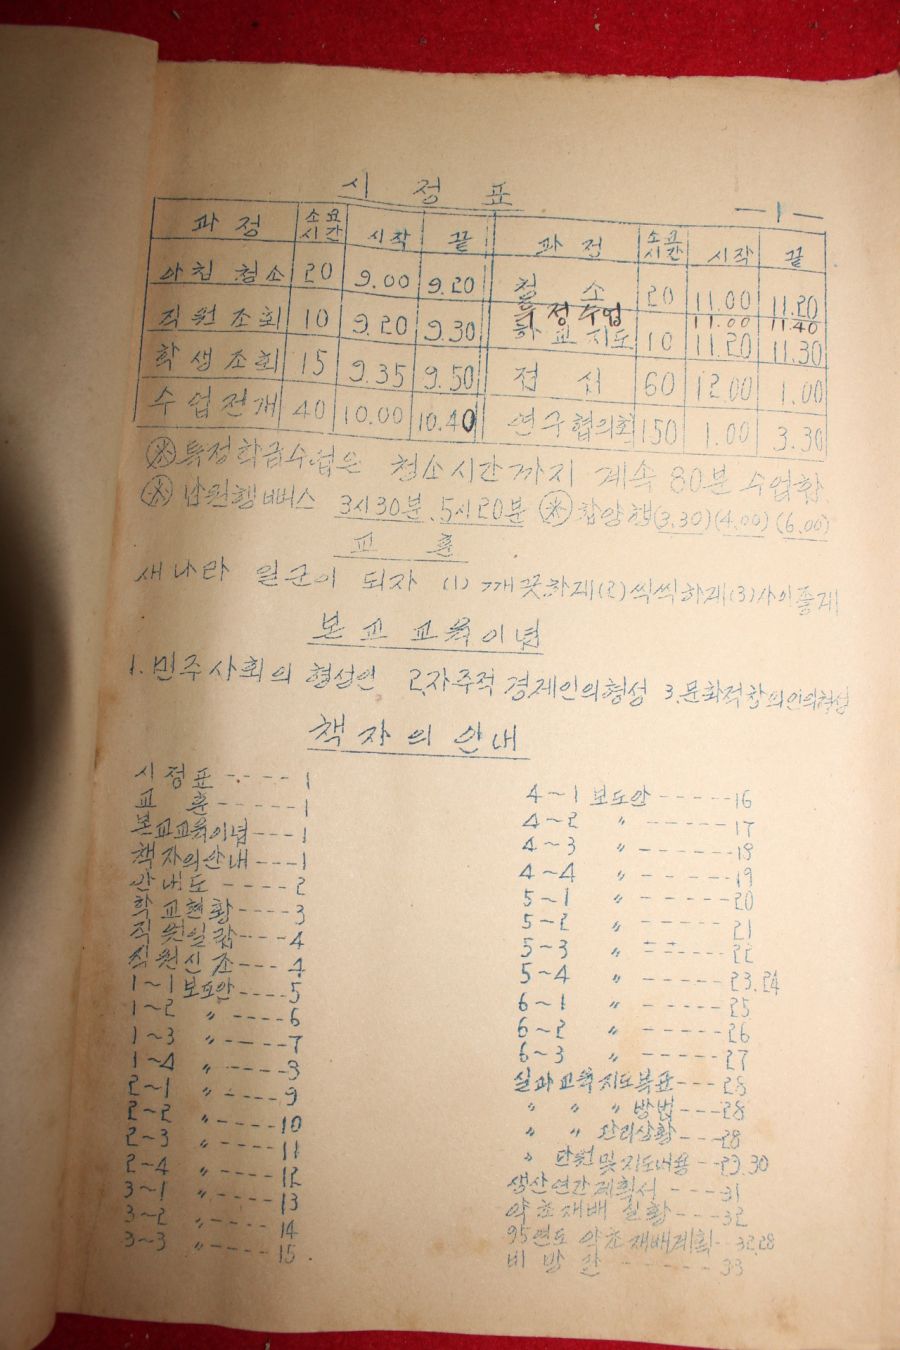 시 정 표
— 1 —
과 정 소요시간 시작 끝 과 정 소요시간 시작 끝
아침 청소 20 9.00 9.20 청 소 20 11.00 11.20
특정수업 11.00 11.40
직원조회 10 9.20 9.30 하교지도 10 11.20 11.30
학생조회 15 9.35 9.50 점 심 60 12.00 1.00
수업전개 40 10.00 10.40 연구협의회 150 1.00 3.30
※ 특정학급수업은 청소시간까지 계속 80분 수업함
※ 남원행 뻐스 3시30분、5시20분 ※ 함양행(3.30)(4.00)(6.00)
교 훈
새나라 일군이 되자 (1) 깨끗하게(2)씩씩하게(3)사이좋게
본교 교육이념
1. 민주사회의 형성인 2.자주적 경제인의형성 3.문화적창의인의형성
책자의 안내
시정표 ---- 1
교 훈 ----- 1
본교교육이념 --- 1
책자의안내 --- 1
안내도 ---- 2
학교현황 ---- 3
직원일람 --- 4
직원신조 --- 4
1~1 보도안 ---- 5
1~2 〃 ---- 6
1~3 〃 ---- 7
1~4 〃 ---- 8
2~1 〃 ---- 9
2~2 〃 ---- 10
2~3 〃 ---- 11
2~4 〃 ---- 12
3~1 〃 ---- 13
3~2 〃 ---- 14
3~3 〃 ---- 15
4~1 보도안 ----- 16
4~2 〃 ------ 17
4~3 〃 ------ 18
4~4 〃 ------ 19
5~1 〃 ------ 20
5~2 〃 ------ 21
5~3 〃 ----- 22
5~4 〃 ----- 23.24
6~1 〃 ----- 25
6~2 〃 ----- 26
6~3 〃 ----- 27
실과교육지도목표 --- 28
〃 〃 〃 방법 --- 28
〃 〃 관리상황 --- 28
〃 단원및지도내용 -- 29.30
생산연간계획서 --- 31
약초재배 실황 --- 32
95연도 약초재배계획 -- 32.28
비 방 란 ------ 33